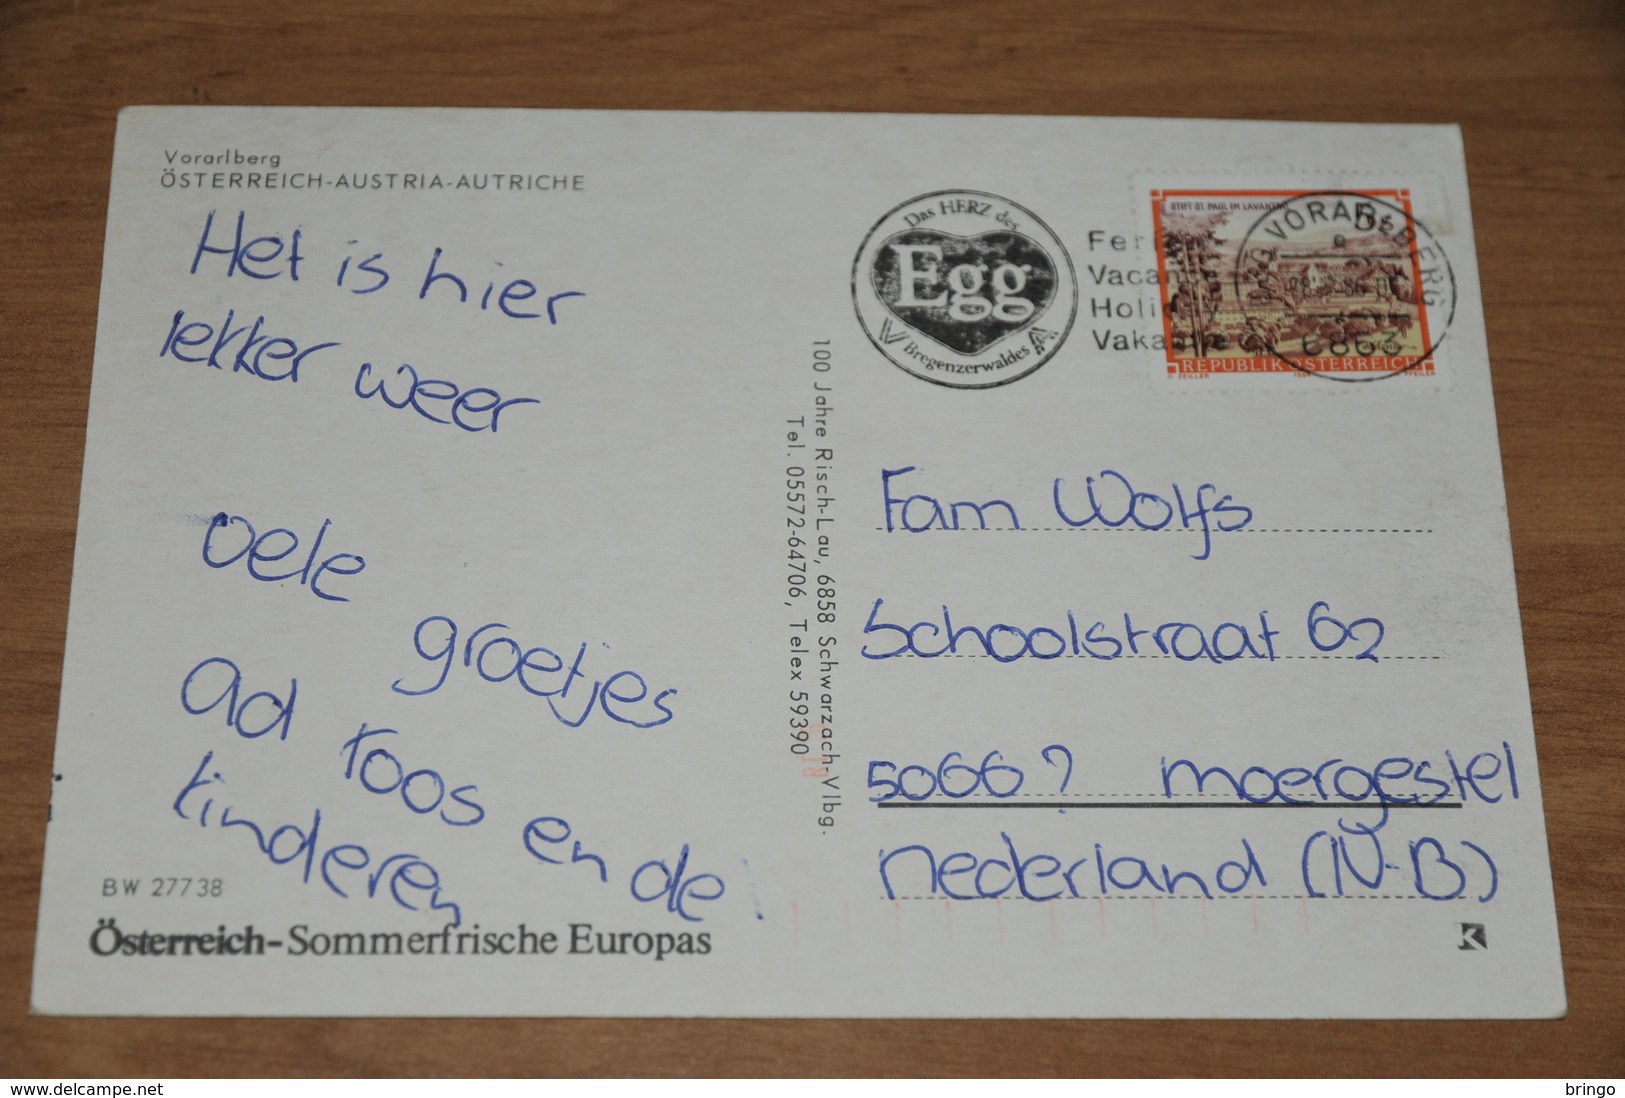 Vorarlberg
ÖSTERREICH-AUSTRIA-AUTRICHE
Het is hier
lekker weer
vele
groetjes
Ad roos en de
kinderen
BW 27738
Österreich-Sommerfrische Europas
100 Jahre Risch-Lau, 6858 Schwarzach-Vlbg.
Tel. 05572-64706, Telex 59390
Das HERZ des
Egg
Bregenzerwaldes
STIFT ST. PAUL IM LAVANTTAL
VORARLBERG
6863
REPUBLIK ÖSTERREICH
O. ZEILLER 1984 PFEILER
Fam Wolfs
Schoolstraat 62
5066? moergestel
nederland (N-B)
K
www.delcampe.net
bringo